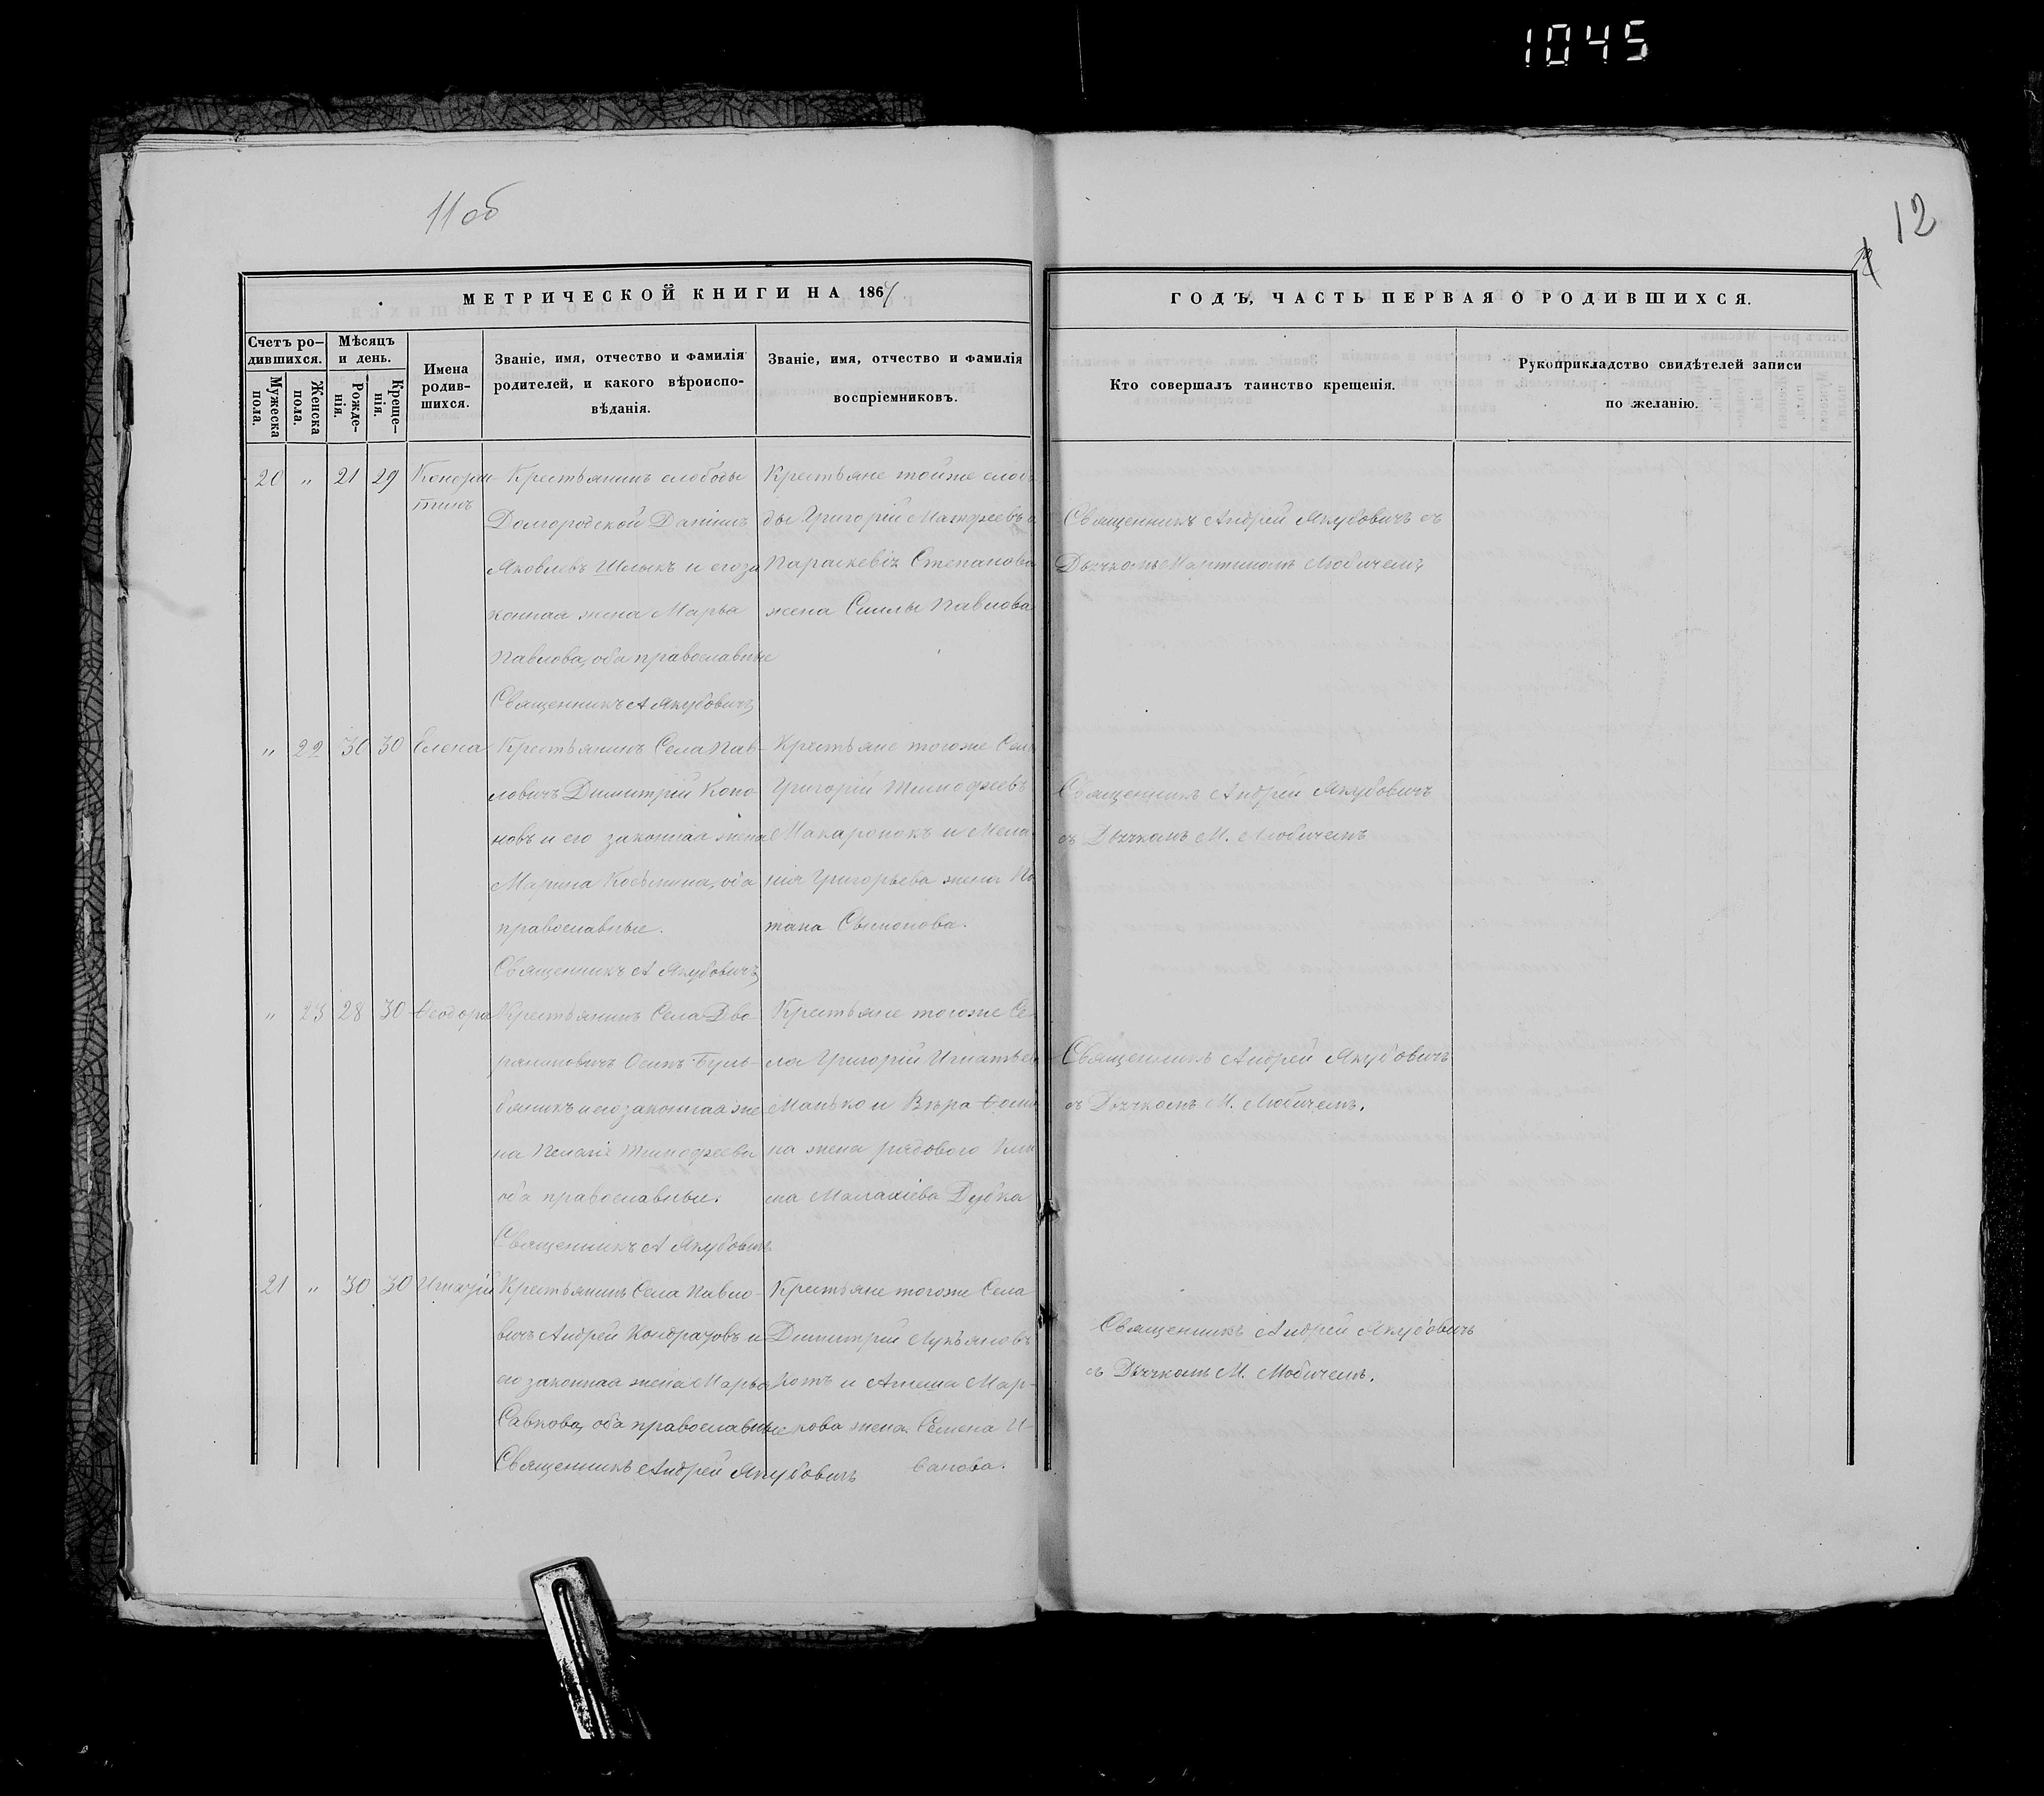 1045
11 об
12
МЕТРИЧЕСКОЙ КНИГИ НА 1867
Счетъ ро-
дившихся.
Мужеска
пола.
Женска
пола.
Мѣсяцъ
и день.
Рожде-
нія.
Креще-
нія.
Имена
родив-
шихся.
Званіе, имя, отчество и фамилія
родителей, и какого вѣроиспо-
вѣданія.
Званіе, имя, отчество и фамилія
воспріемниковъ.
ГОДЪ, ЧАСТЬ ПЕРВАЯ О РОДИВШИХСЯ.
Кто совершалъ таинство крещенія.
Рукоприкладство свидѣтелей записи
по желанію.
20 " 21 29
Крестьянинъ слободы
Долгородской
Яковлевъ Шлыкъ и его за
конная жена Марья
Павлова, оба православные
Священникъ А Якубовичъ
Крестьяне тойже слобо
ды Григорій Матфеевъ
Параскевія Степанова
жена Павлова
Священникъ Андрей Якубовичъ съ
Дьячкомъ Мартиномъ Любичемъ
" 22 30 30 Елена
Крестьянинъ Села Пав-
ловичъ Димитрій Коно
новъ и его законная жена
Марина Косьмина, оба
православные.
Священникъ А Якубовичъ
Крестьяне тогоже Села
Григорій Тимофеевъ
Макаронокъ и Мела
нія Григорьева жена По
тапа
Священникъ Андрей Якубовичъ
съ Дьячкомъ М. Любичемъ
" 23 28 30 Ѳеодора
Крестьянинъ Села Дво
раниновичъ Осипъ Буль-
бяникъ и его законная же
на Пелагія Тимофеева
оба православные.
Священникъ А Якубовичъ
Крестьяне тогоже Се-
ла Григорій Игнатьев
Манько и Вѣра Ѳоми
на жена рядового Кли
ма Малахіева Дубка
Священникъ Андрей Якубовичъ
съ Дьячкомъ М. Любичемъ.
21 " 30 30 Игнатій
Крестьянинъ Села Павло-
вичъ Андрей Кондратовъ и
его законная жена Марья
Савкова, оба православные
Священникъ Андрей Якубовичъ
Крестьяне тогоже Села
Димитрій Лукьяновъ
Котъ и Агеша Мар-
кова жена Семена И-
ванова.
Священникъ Андрей Якубовичъ
съ Дьячкомъ М. Любичемъ.